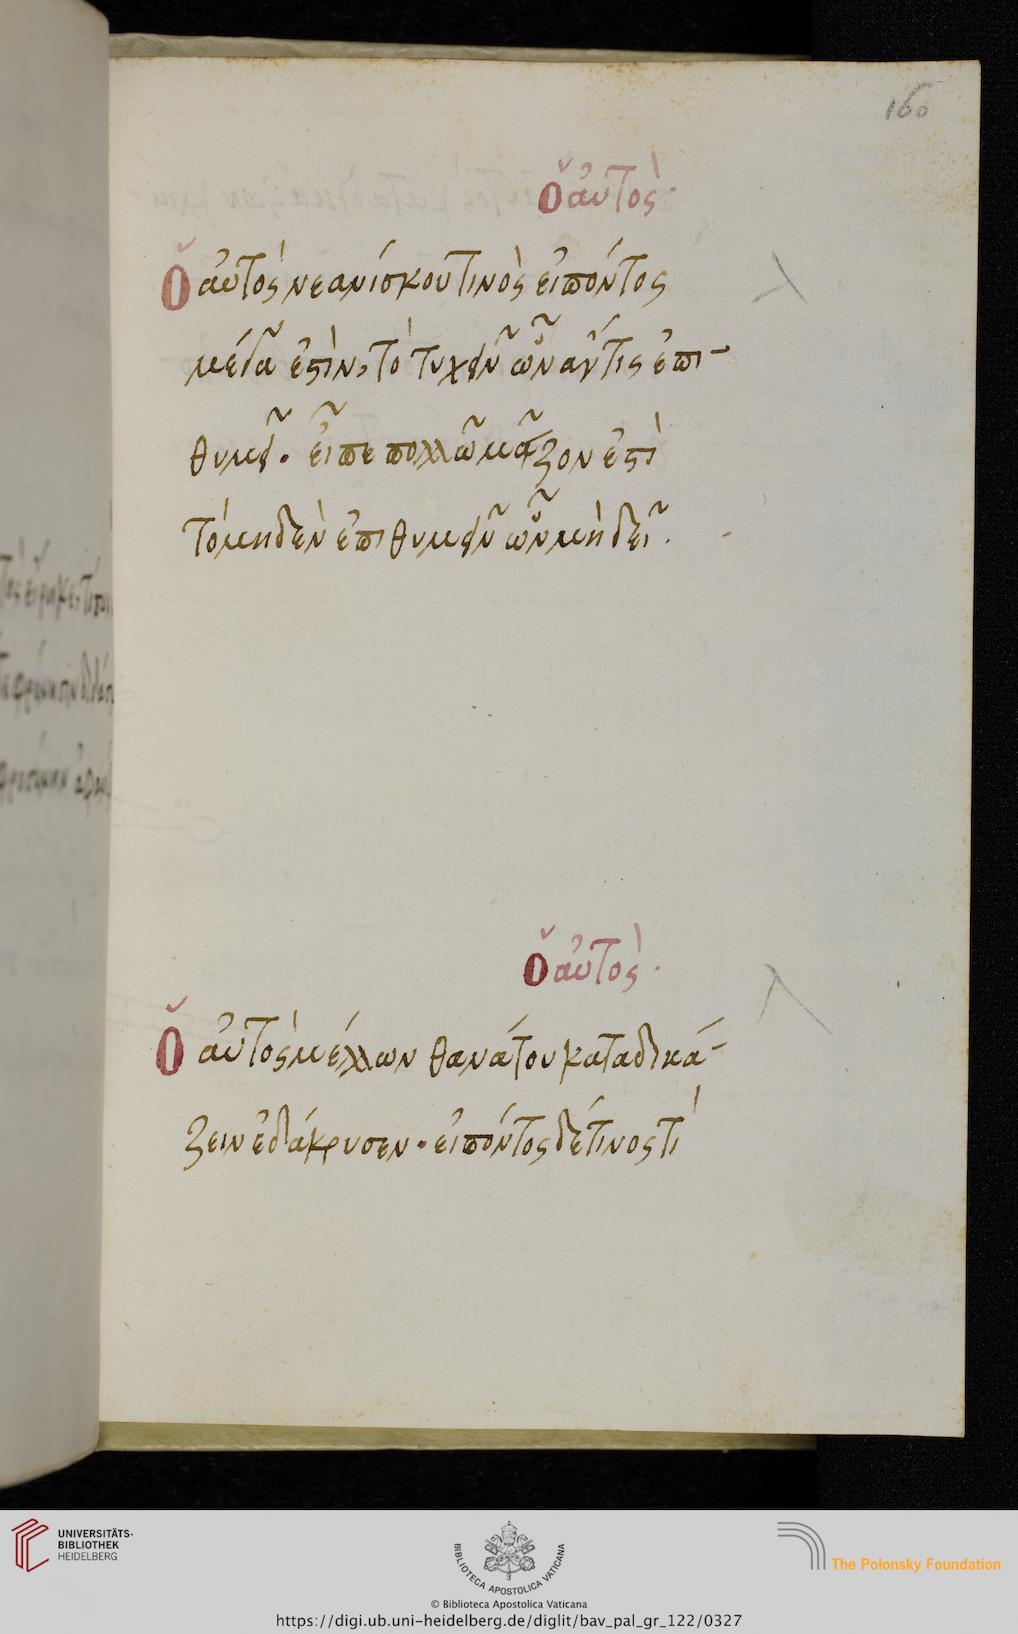 160
Ὁ αὐτός.
Ὁ αὐτὸς νεανίσκου τινὸς εἰπόντος
μέγα ἐστὶν, τὸ τυχεῖν ὧν ἄν τις ἐπι-
θυμεῖ. εἶπε πολλῷ μεῖζον ἐστὶ
τὸ μηδὲν ἐπιθυμεῖν ὧν μὴ δεῖ.
Ὁ αὐτός.
Ὁ αὐτὸς μέλλων θανάτου καταδικά-
ζειν ἐδάκρυσεν. εἰπόντος δέ τινος τί
UNIVERSITÄTS-
BIBLIOTHEK
HEIDELBERG
BIBLIOTECA APOSTOLICA VATICANA
The Polonsky Foundation
© Biblioteca Apostolica Vaticana
https://digi.ub.uni-heidelberg.de/diglit/bav_pal_gr_122/0327